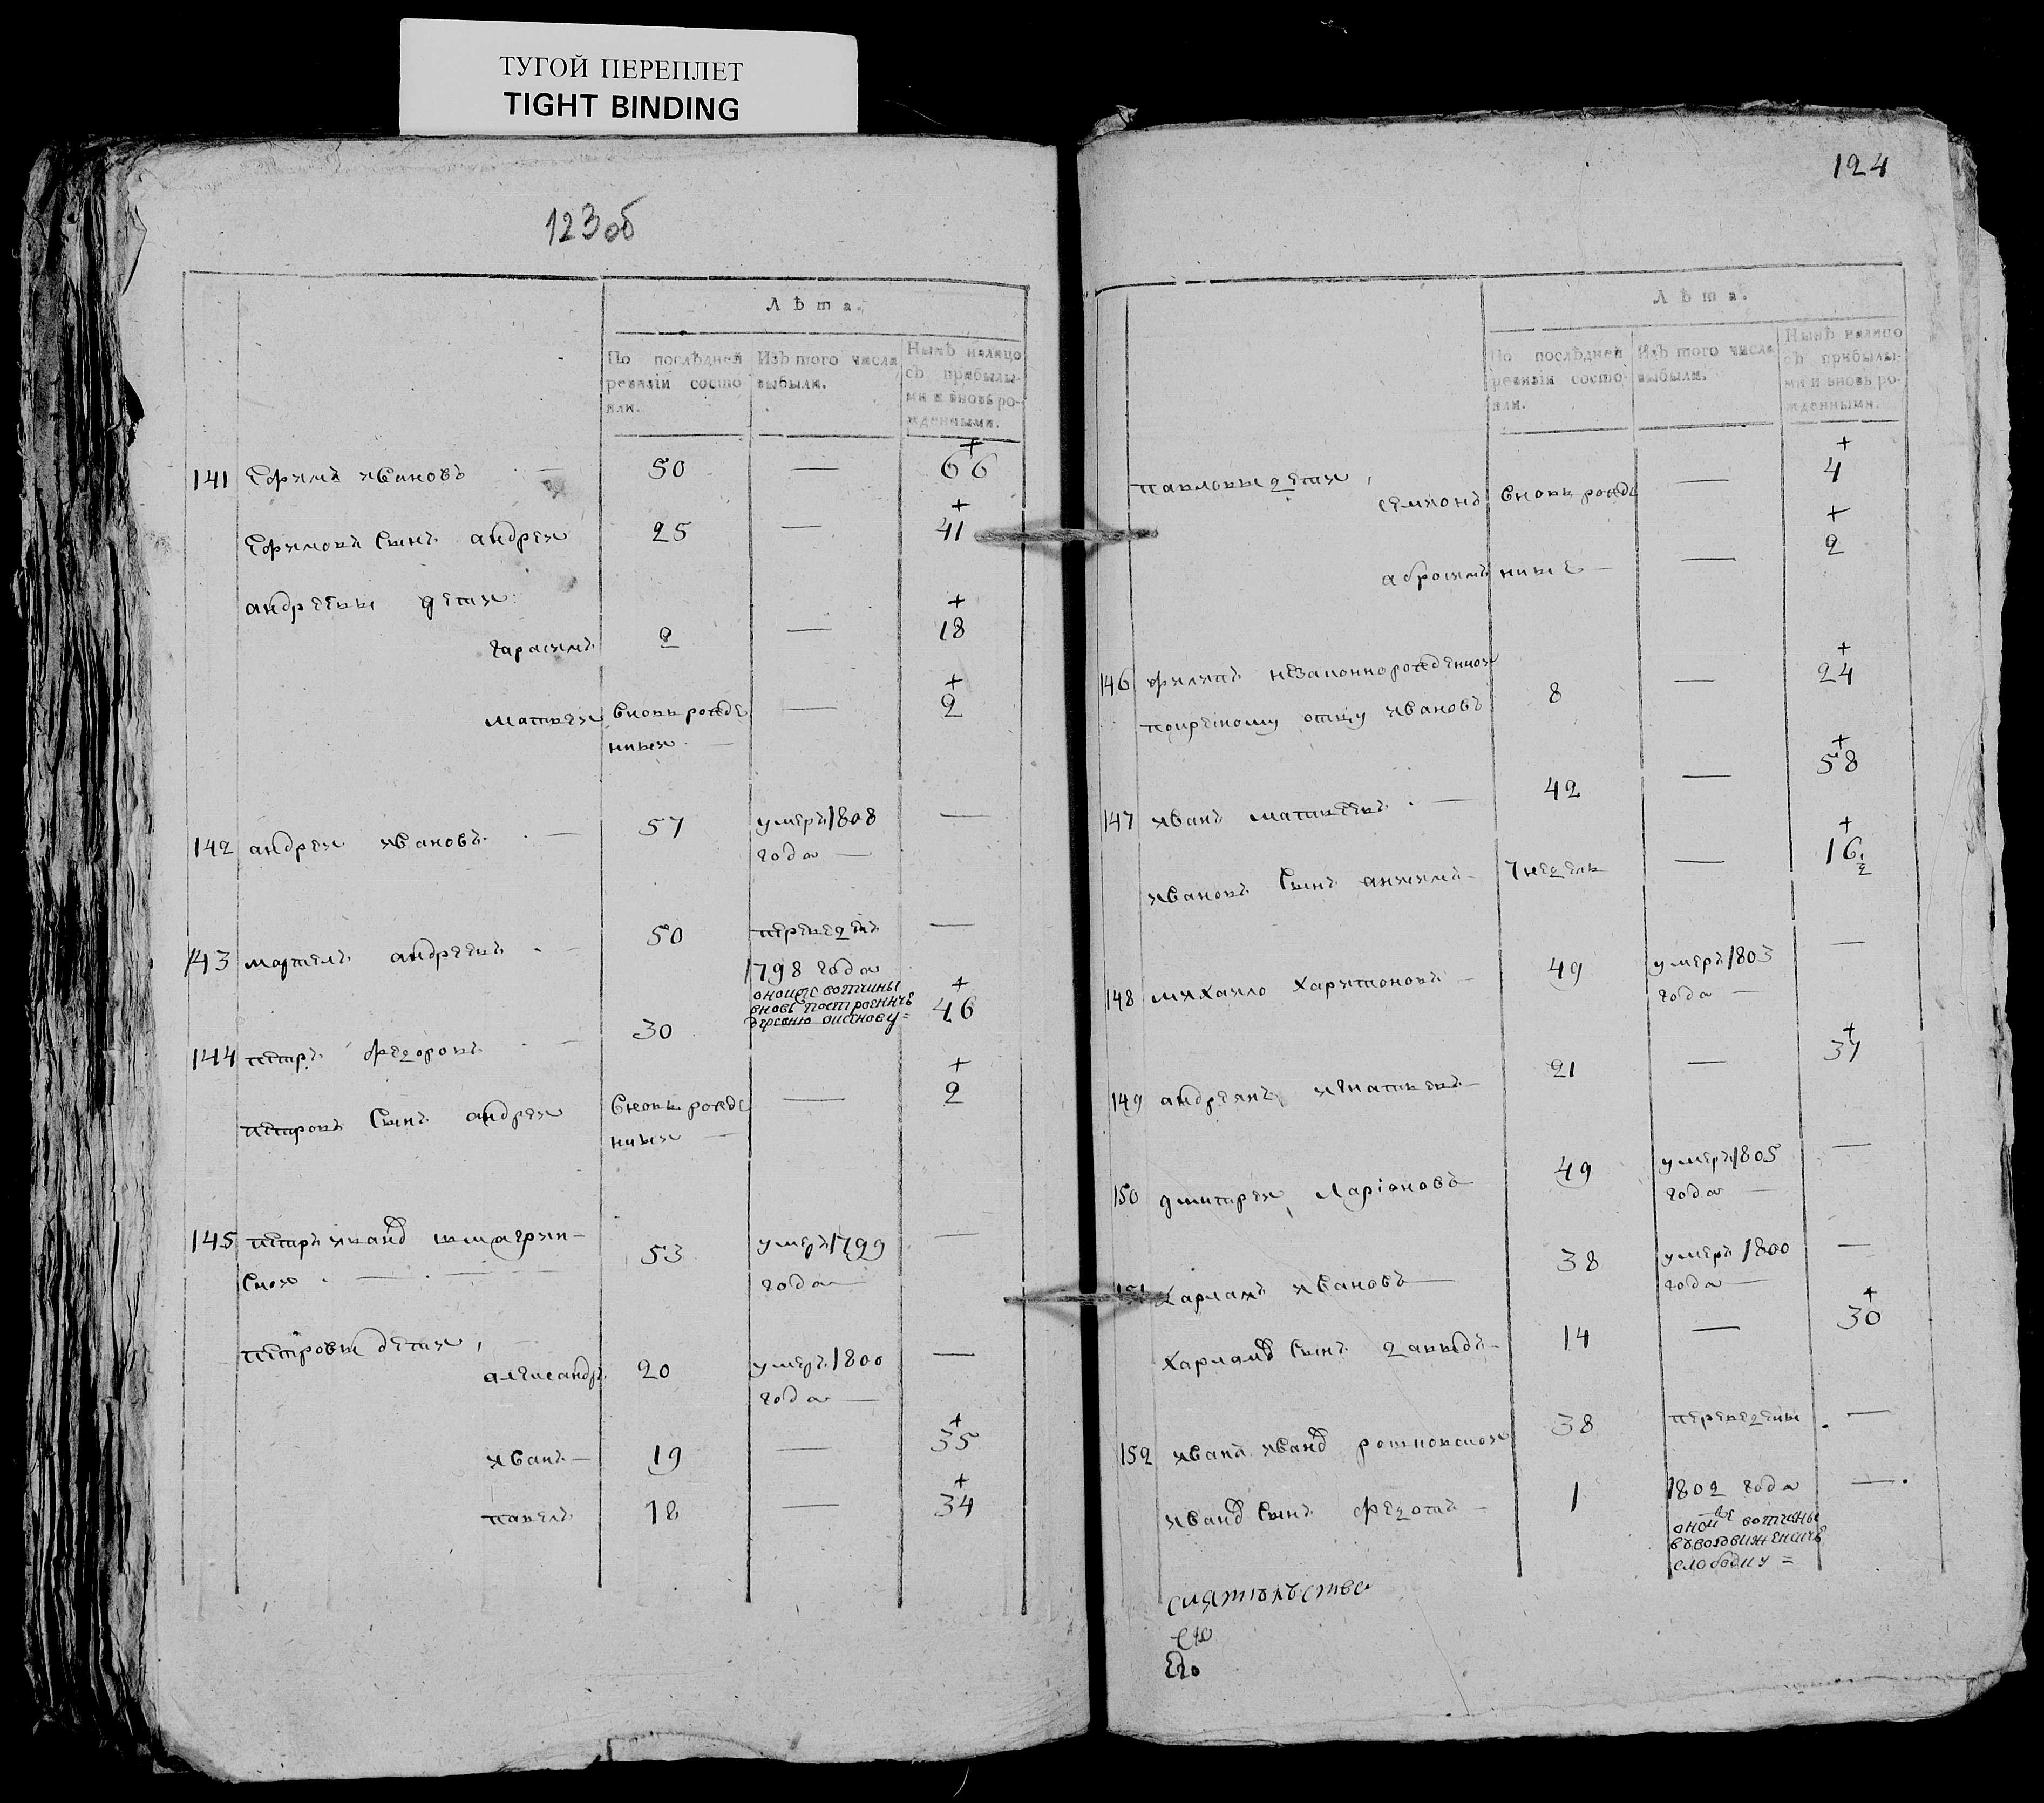 ТУГОЙ ПЕРЕПЛЕТ
TIGHT BINDING
123об
Лѣта.
По послѣдней ревизіи состояли.
Изъ того числа выбыли.
Нынѣ налицо съ прибылыми и вновь рожденными.
141 Ефимъ ивановъ — 50 — + 66
Ефимовъ Сынъ андреи 25 — + 41
андреевы дети
гарасимъ 2 — + 18
матвеи вновь рожде — + 2
ныи —
142 андреи ивановъ — 57 умеръ 1808 —
года —
143 андреевъ — 50 переведенъ —
1798 года
оной же вотчины
вновь построенную
деревню
144 петръ федоровъ — 30 + 46
петровъ Сынъ андреи вновь рожде — + 2
ныи —
145 петръ 53 умеръ 1799 —
года —
петровы дети,
александръ 20 умеръ 1800 —
года —
иванъ — 19 — + 35
павелъ 18 — + 34
124
Лѣта.
По послѣдней ревизіи состояли.
Изъ того числа выбыли.
Нынѣ налицо съ прибылыми и вновь рожденными.
павловы дети,
семионъ вновь рожде — + 4
абросимъ ные — + 2
146 филипъ незаконнорожденнои — + 24
покрестному отцу ивановъ 8
147 иванъ матвеевъ — 42 — + 58
ивановъ Сынъ 7 недель — + 16 1/2
148 михаило харитоновъ — 49 умеръ 1803 —
года —
149 андреянъ игнатьевъ — 21 — + 37
150 дмитреи Ларіоновъ 49 умеръ 1805 —
года —
151 харламъ ивановъ — 38 умеръ 1800 —
года —
Сынъ давыдъ — 14 — + 30
152 иванъ 38 переведены —
Сынъ федотъ — 1 1802 года —
оной же вотчины
слободку =
Его